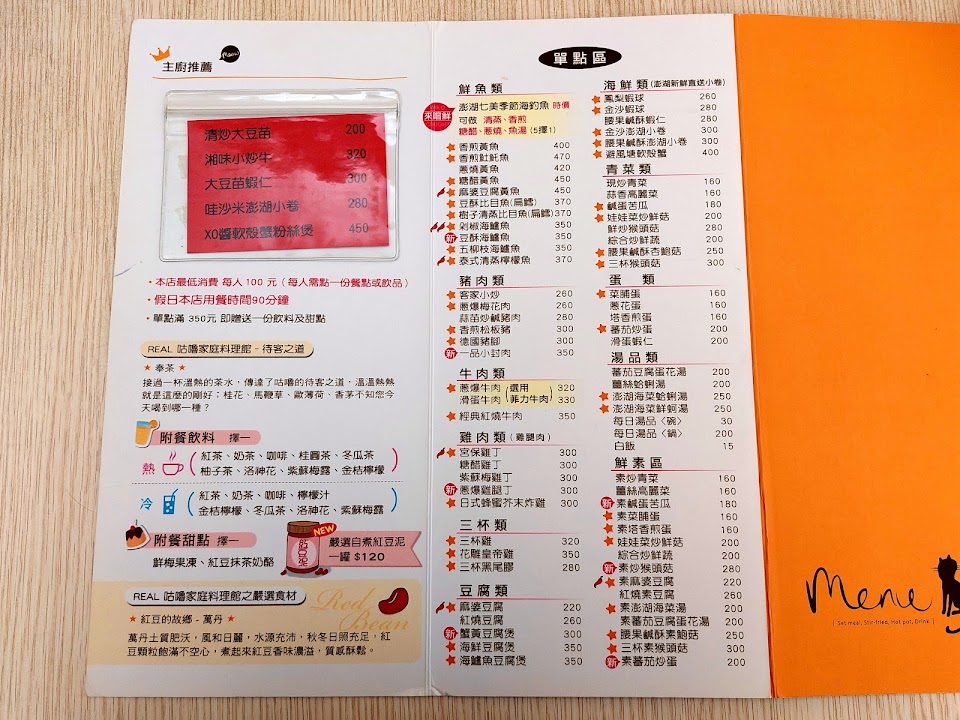 主廚推薦
清炒大豆苗 200
湘味小炒牛 320
大豆苗蝦仁 300
哇沙米澎湖小卷 280
XO醬軟殼蟹粉絲煲 450
・本店最低消費 每人 100 元（每人需點一份餐點或飲品）
・假日本店用餐時間90分鐘
・單點滿 350元 即贈送一份飲料及甜點
REAL 咕嚕家庭料理館 - 待客之道
★ 奉茶 ★
接過一杯溫熱的茶水，傳達了咕嚕的待客之道，溫溫熱熱
就是這麼的剛好：桂花、馬鞭草、歐薄荷、香茅不知您今
天喝到哪一種？
附餐飲料 擇一
熱
紅茶、奶茶、咖啡、桂圓茶、冬瓜茶
柚子茶、洛神花、紫蘇梅露、金桔檸檬
冷
紅茶、奶茶、咖啡、檸檬汁
金桔檸檬、冬瓜茶、洛神花、紫蘇梅露
附餐甜點 擇一
鮮梅果凍、紅豆抹茶奶酪
NEW
嚴選自煮紅豆泥
一罐 $120
REAL 咕嚕家庭料理館之嚴選食材
Red Bean
★ 紅豆的故鄉 - 萬丹 ★
萬丹土質肥沃，風和日麗，水源充沛，秋冬日照充足，紅
豆顆粒飽滿不空心，煮起來紅豆香味濃溢，質感酥鬆。
單點區
鮮魚類
來嚐鮮
澎湖七美季節海釣魚 時價
可做 清蒸、香煎
糖醋、蔥燒、魚湯（5擇1）
香煎黃魚 400
香煎肚魠魚 470
蔥燒黃魚 420
糖醋黃魚 450
麻婆豆腐黃魚 450
豆酥比目魚(扁鱈) 370
樹子清蒸比目魚(扁鱈) 370
剁椒海鱸魚 350
新 豆酥海鱸魚 350
五柳枝海鱸魚 350
泰式清蒸檸檬魚 370
豬肉類
客家小炒 260
蔥爆梅花肉 260
蒜苗炒鹹豬肉 280
香煎松板豬 300
德國豬腳 300
新 一品小封肉 350
牛肉類
蔥爆牛肉 選用 320
滑蛋牛肉 菲力牛肉 330
經典紅燒牛肉 350
雞肉類（雞腿肉）
宮保雞丁 300
糖醋雞丁 300
紫蘇梅雞丁 300
新 蔥爆雞腿丁 300
日式蜂蜜芥末炸雞 300
三杯類
三杯雞 320
花雕皇帝雞 350
三杯黑尾膠 280
豆腐類
麻婆豆腐 220
紅燒豆腐 260
新 蟹黃豆腐煲 300
海鮮豆腐煲 350
海鱸魚豆腐煲 350
海鮮類（澎湖新鮮直送小卷）
鳳梨蝦球 260
金沙蝦球 280
腰果鹹酥蝦仁 280
金沙澎湖小卷 300
腰果鹹酥澎湖小卷 300
避風塘軟殼蟹 400
青菜類
現炒青菜 160
蒜香高麗菜 160
鹹蛋苦瓜 180
娃娃菜炒鮮菇 200
鮮炒猴頭菇 280
綜合炒鮮蔬 200
腰果鹹酥杏鮑菇 250
三杯猴頭菇 300
蛋類
菜脯蛋 160
蔥花蛋 160
塔香煎蛋 160
蕃茄炒蛋 200
滑蛋蝦仁 200
湯品類
蕃茄豆腐蛋花湯 200
薑絲蛤蜊湯 200
澎湖海菜蛤蜊湯 250
澎湖海菜鮮蚵湯 250
每日湯品〈碗〉 30
每日湯品〈鍋〉 200
白飯 15
鮮素區
素炒青菜 160
薑絲高麗菜 160
新 素鹹蛋苦瓜 180
素菜脯蛋 160
素塔香煎蛋 160
娃娃菜炒鮮菇 200
綜合炒鮮蔬 200
新 素炒猴頭菇 280
素麻婆豆腐 220
紅燒素豆腐 260
素澎湖海菜湯 200
素蕃茄豆腐蛋花湯 200
腰果鹹酥素鮑菇 250
三杯素猴頭菇 300
新 素蕃茄炒蛋 200
Menu
[ Set meal, Stir-fried, Hot pot, Drink ]